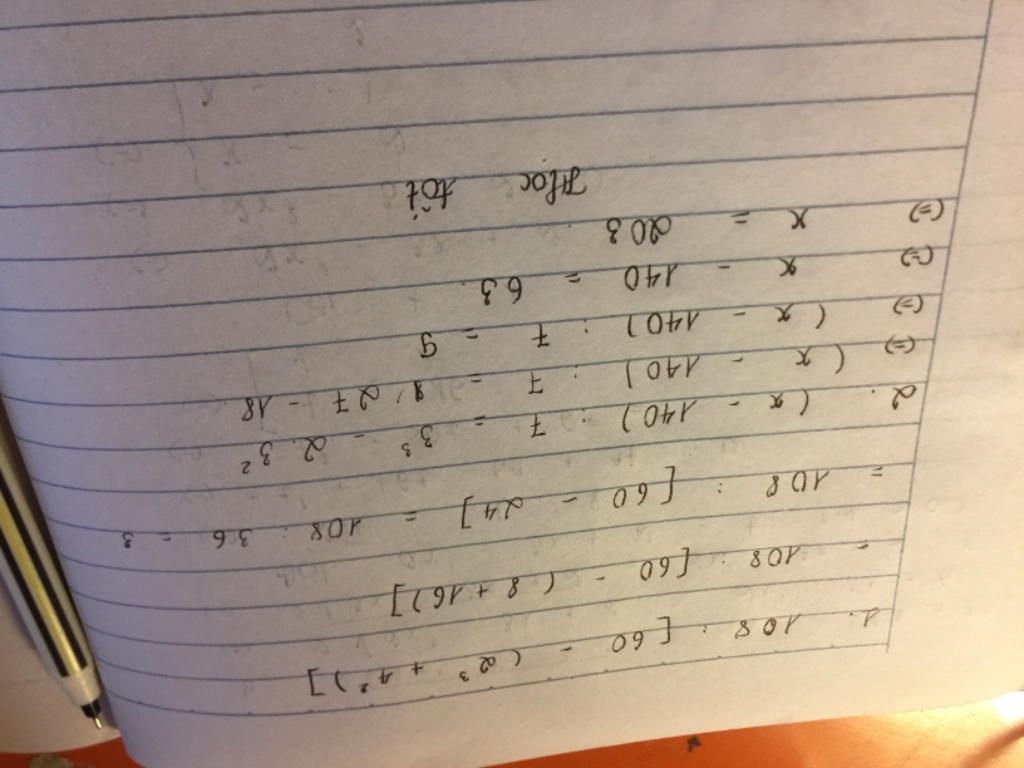 1. 108 : [60 - (2³ + 4²)]
= 108 : [60 - (8 + 16)]
= 108 : [60 - 24] = 108 : 36 = 3
2. (x - 140) : 7 = 3³ - 2.3²
(=) (x - 140) : 7 = 27 - 18
(=) (x - 140) : 7 = 9
(=) x - 140 = 63
(=) x = 203
Học tốt